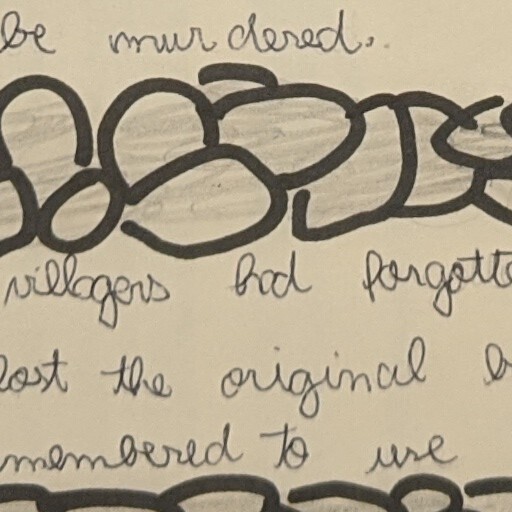 be murdered.
villagers had forgotte
lost the original b
membered to use